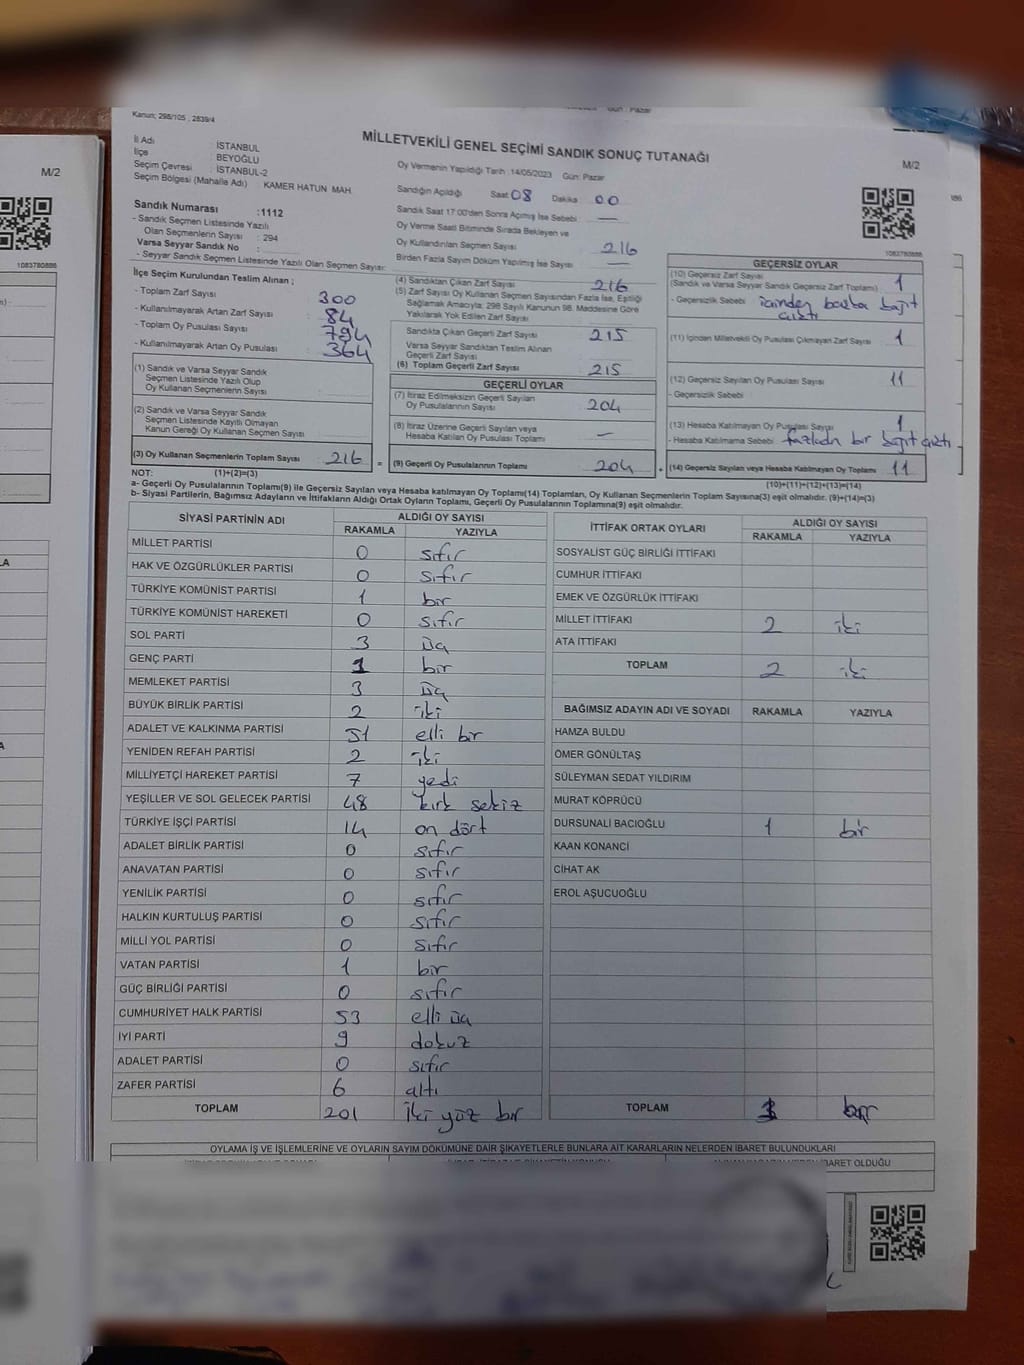 Kanun; 298/105 , 2839/4
MİLLETVEKİLİ GENEL SEÇİMİ SANDIK SONUÇ TUTANAĞI
M/2
M/2
İl Adı : İSTANBUL
İlçe : BEYOĞLU
Seçim Çevresi : İSTANBUL-2
Seçim Bölgesi (Mahalle Adı) KAMER HATUN MAH.
Sandık Numarası :1112
- Sandık Seçmen Listesinde Yazılı
Olan Seçmenlerin Sayısı : 294
Varsa Seyyar Sandık No :
- Seyyar Sandık Seçmen Listesinde Yazılı Olan Seçmen Sayısı:
Oy Vermenin Yapıldığı Tarih :14/05/2023 Gün: Pazar
Sandığın Açıldığı Saat 08 Dakika 00
Sandık Saat 17:00'den Sonra Açılmış İse Sebebi : —
Oy Verme Saati Bitiminde Sırada Bekleyen ve
Oy Kullandırılan Seçmen Sayısı 216
Birden Fazla Sayım Döküm Yapılmış İse Sayısı —
İlçe Seçim Kurulundan Teslim Alınan ;
- Toplam Zarf Sayısı : 300
- Kullanılmayarak Artan Zarf Sayısı : 84
- Toplam Oy Pusulası Sayısı : 794
- Kullanılmayarak Artan Oy Pusulası : 364
(1) Sandık ve Varsa Seyyar Sandık
Seçmen Listesinde Yazılı Olup
Oy Kullanan Seçmenlerin Sayısı
(2) Sandık ve Varsa Seyyar Sandık
Seçmen Listesinde Kayıtlı Olmayan
Kanun Gereği Oy Kullanan Seçmen Sayısı
(3) Oy Kullanan Seçmenlerin Toplam Sayısı 216
(4) Sandıktan Çıkan Zarf Sayısı : 216
(5) Zarf Sayısı Oy Kullanan Seçmen Sayısından Fazla İse, Eşitliği
Sağlamak Amacıyla, 298 Sayılı Kanunun 98. Maddesine Göre
Yakılarak Yok Edilen Zarf Sayısı
Sandıkta Çıkan Geçerli Zarf Sayısı 215
Varsa Seyyar Sandıktan Teslim Alınan
Geçerli Zarf Sayısı
(6) Toplam Geçerli Zarf Sayısı : 215
GEÇERLİ OYLAR
(7) İtiraz Edilmeksizin Geçerli Sayılan
Oy Pusulalarının Sayısı 204
(8) İtiraz Üzerine Geçerli Sayılan veya
Hesaba Katılan Oy Pusulası Toplamı —
= (9) Geçerli Oy Pusulalarının Toplamı 204
1083780886
1083780886
GEÇERSİZ OYLAR
(10) Geçersiz Zarf Sayısı
(Sandık ve Varsa Seyyar Sandık Geçersiz Zarf Toplamı) 1
- Geçersizlik Sebebi : içinden başka kağıt
çıktı
(11) İçinden Milletvekili Oy Pusulası Çıkmayan Zarf Sayısı 1
(12) Geçersiz Sayılan Oy Pusulası Sayısı 11
- Geçersizlik Sebebi
(13) Hesaba Katılmayan Oy Pusulası Sayısı 1
- Hesaba Katılmama Sebebi fazladan bir kağıt çıktı
+ (14) Geçersiz Sayılan veya Hesaba Katılmayan Oy Toplamı 11
NOT: (1)+(2)=(3)
(10)+(11)+(12)+(13)=(14)
a- Geçerli Oy Pusulalarının Toplamı(9) ile Geçersiz Sayılan veya Hesaba katılmayan Oy Toplamı(14) Toplamları, Oy Kullanan Seçmenlerin Toplam Sayısına(3) eşit olmalıdır. (9)+(14)=(3)
b- Siyasi Partilerin, Bağımsız Adayların ve İttifakların Aldığı Ortak Oyların Toplamı, Geçerli Oy Pusulalarının Toplamına(9) eşit olmalıdır.
SİYASİ PARTİNİN ADI ALDIĞI OY SAYISI
RAKAMLA YAZIYLA
MİLLET PARTİSİ 0 sıfır
HAK VE ÖZGÜRLÜKLER PARTİSİ 0 sıfır
TÜRKİYE KOMÜNİST PARTİSİ 1 bir
TÜRKİYE KOMÜNİST HAREKETİ 0 sıfır
SOL PARTİ 3 üç
GENÇ PARTİ 1 bir
MEMLEKET PARTİSİ 3 üç
BÜYÜK BİRLİK PARTİSİ 2 iki
ADALET VE KALKINMA PARTİSİ 51 elli bir
YENİDEN REFAH PARTİSİ 2 iki
MİLLİYETÇİ HAREKET PARTİSİ 7 yedi
YEŞİLLER VE SOL GELECEK PARTİSİ 48 kırk sekiz
TÜRKİYE İŞÇİ PARTİSİ 14 on dört
ADALET BİRLİK PARTİSİ 0 sıfır
ANAVATAN PARTİSİ 0 sıfır
YENİLİK PARTİSİ 0 sıfır
HALKIN KURTULUŞ PARTİSİ 0 sıfır
MİLLİ YOL PARTİSİ 0 sıfır
VATAN PARTİSİ 1 bir
GÜÇ BİRLİĞİ PARTİSİ 0 sıfır
CUMHURİYET HALK PARTİSİ 53 elli üç
İYİ PARTİ 9 dokuz
ADALET PARTİSİ 0 sıfır
ZAFER PARTİSİ 6 altı
TOPLAM 201 iki yüz bir
İTTİFAK ORTAK OYLARI ALDIĞI OY SAYISI
RAKAMLA YAZIYLA
SOSYALİST GÜÇ BİRLİĞİ İTTİFAKI
CUMHUR İTTİFAKI
EMEK VE ÖZGÜRLÜK İTTİFAKI
MİLLET İTTİFAKI 2 iki
ATA İTTİFAKI
TOPLAM 2 iki
BAĞIMSIZ ADAYIN ADI VE SOYADI RAKAMLA YAZIYLA
HAMZA BULDU
ÖMER GÖNÜLTAŞ
SÜLEYMAN SEDAT YILDIRIM
MURAT KÖPRÜCÜ
DURSUNALİ BACIOĞLU 1 bir
KAAN KONANCİ
CİHAT AK
EROL AŞUCUOĞLU
TOPLAM 1 bir
OYLAMA İŞ VE İŞLEMLERİNE VE OYLARIN SAYIM DÖKÜMÜNE DAİR ŞİKAYETLERLE BUNLARA AİT KARARLARIN NELERDEN İBARET BULUNDUKLARI
İBARET OLDUĞU